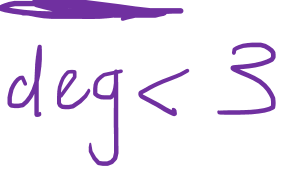 deg < 3